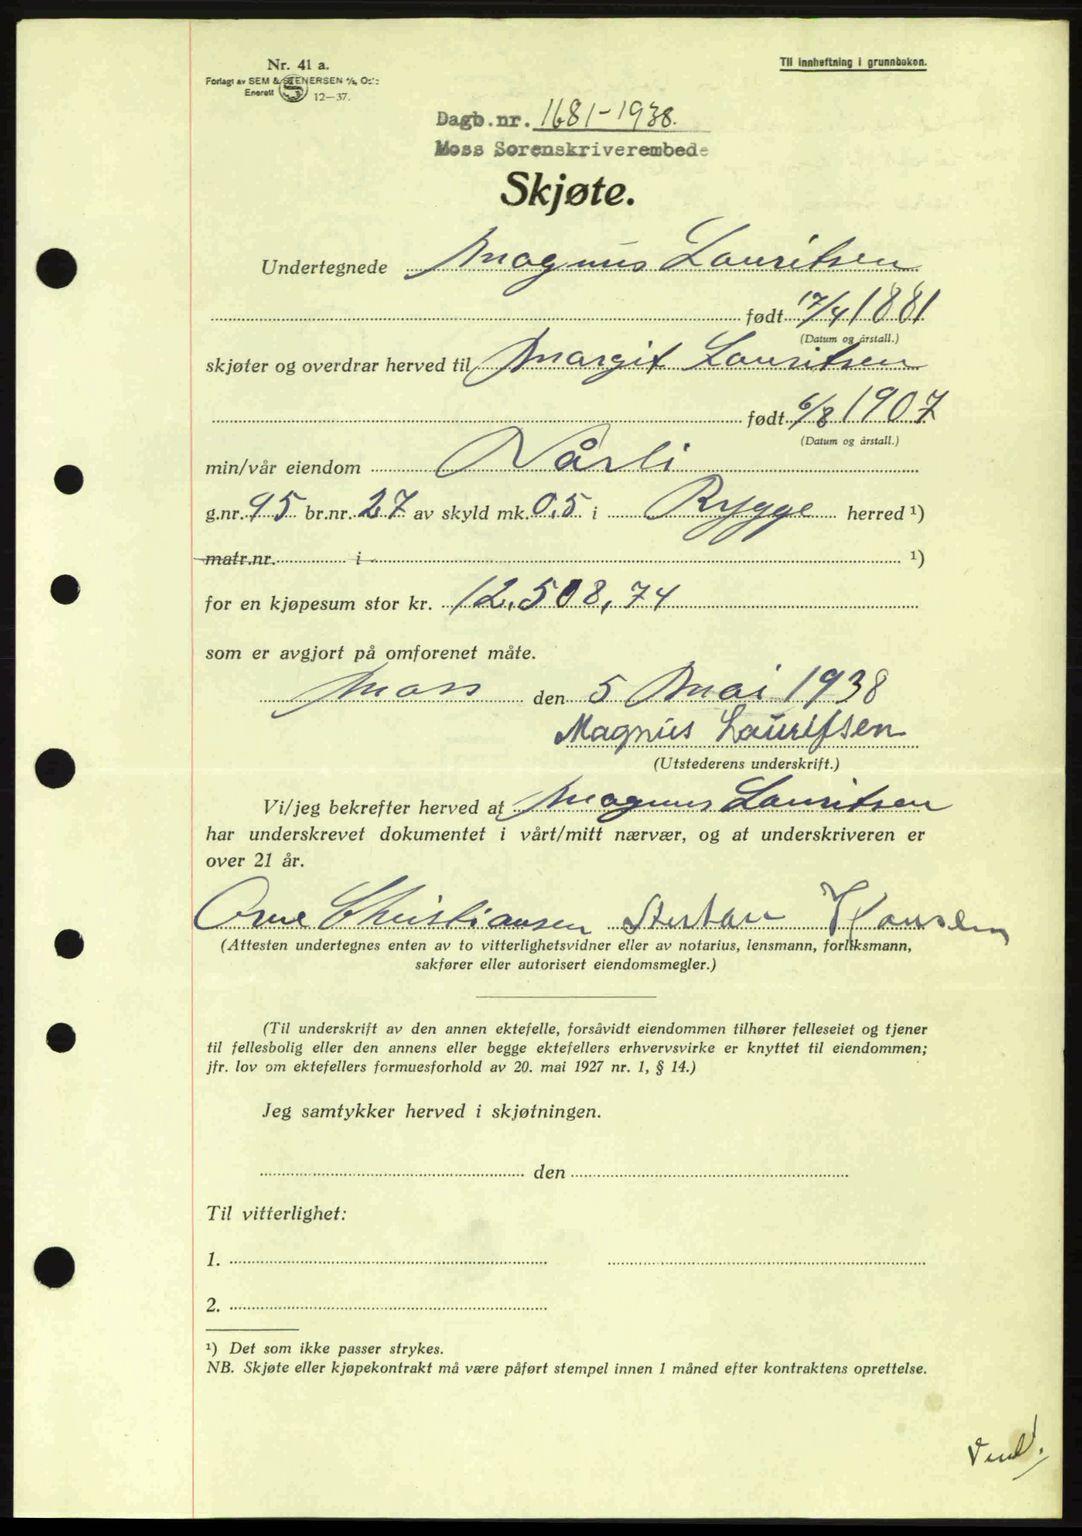 Nr. 41 a.
Til innheftning i grunnboken.
Forlagt av SEM & STENERSEN A/S, Oslo
Enerett 12—37.
Dagb.nr. 1681-1938.
Moss Sorenskriverembede
Skjøte.
Undertegnede Magnus Lauritsen
født 17/4 1881
(Datum og årstall.)
skjøter og overdrar herved til Margit Lauritsen
født 6/8 1907
(Datum og årstall.)
min/vår eiendom Nårli
g.nr. 95 br.nr. 27 av skyld mk. 0,5 i Rygge herred ¹)
matr.nr. i ¹)
for en kjøpesum stor kr. 12.508,74
som er avgjort på omforenet måte.
Moss den 5 Mai 1938
Magnus Lauritsen
(Utstederens underskrift.)
Vi/jeg bekrefter herved at Magnus Lauritsen
har underskrevet dokumentet i vårt/mitt nærvær, og at underskriveren er
over 21 år.
Arne Christiansen Hansen
(Attesten undertegnes enten av to vitterlighetsvidner eller av notarius, lensmann, forliksmann,
sakfører eller autorisert eiendomsmegler.)
(Til underskrift av den annen ektefelle, forsåvidt eiendommen tilhører felleseiet og tjener
til fellesbolig eller den annens eller begge ektefellers erhvervsvirke er knyttet til eiendommen;
jfr. lov om ektefellers formuesforhold av 20. mai 1927 nr. 1, § 14.)
Jeg samtykker herved i skjøtningen.
den
Til vitterlighet:
1.
2.
¹) Det som ikke passer strykes.
NB. Skjøte eller kjøpekontrakt må være påført stempel innen 1 måned efter kontraktens oprettelse.
Vend!